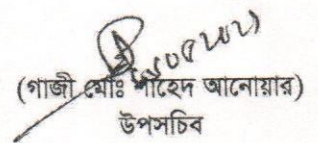 (গাজী মোঃ শাহেদ আনোয়ার)
উপসচিব